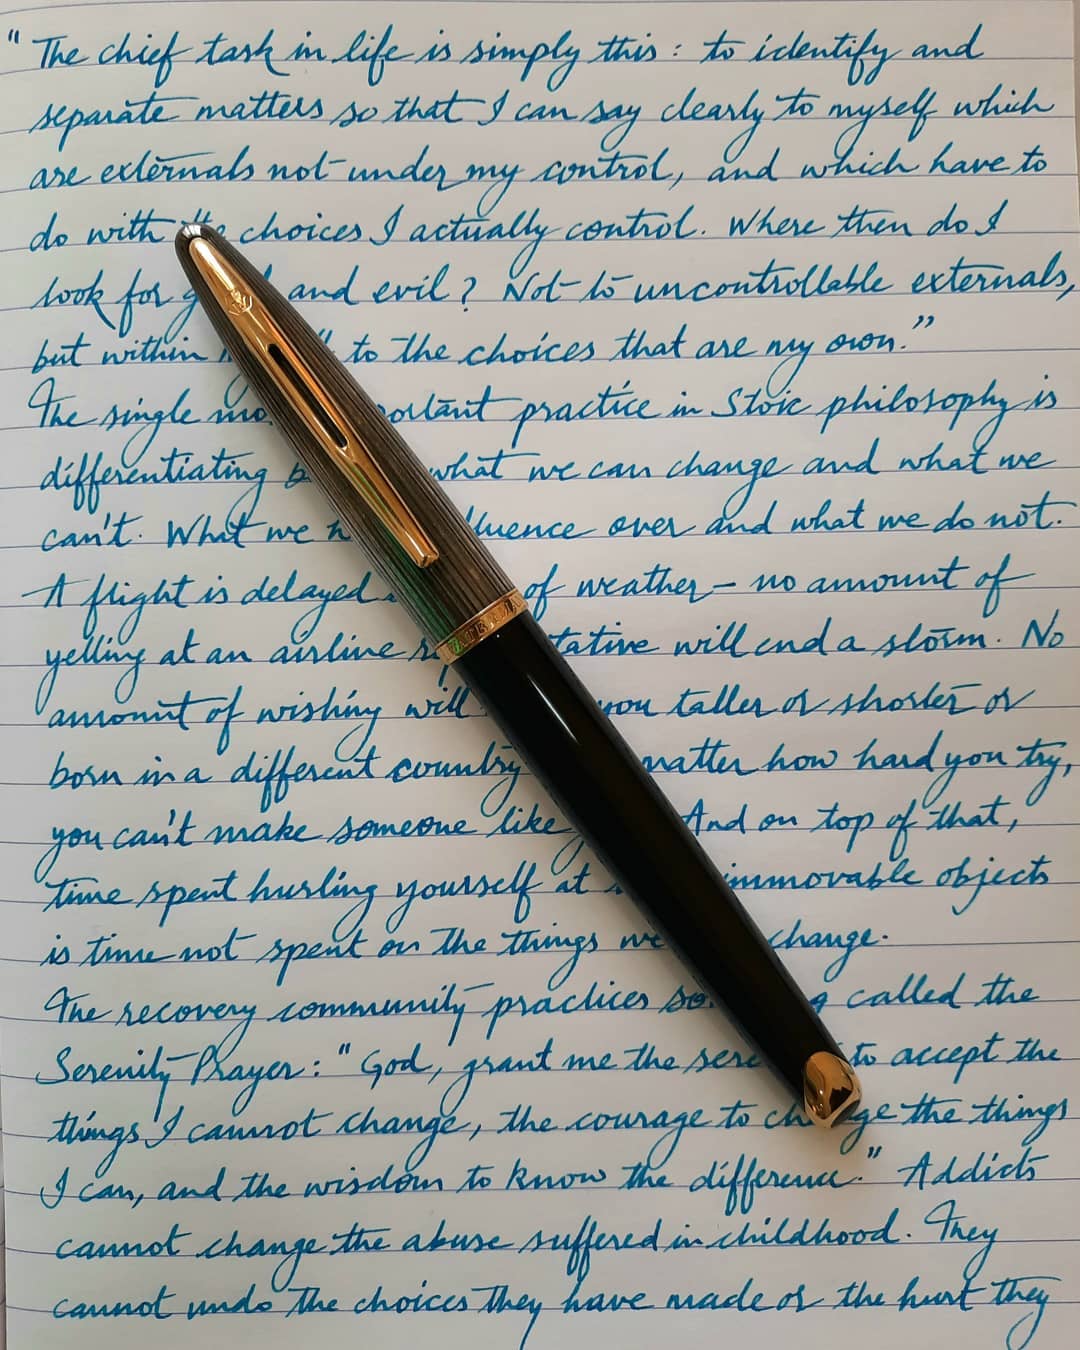 "The chief task in life is simply this: to identify and
separate matters so that I can say clearly to myself which
are externals not under my control, and which have to
do with the choices I actually control. Where then do I
look for and evil? Not to uncontrollable externals,
but within to the choices that are my own."
The single portant practice in Stoic philosophy is
differentiating what we can change and what we
can't. What we fluence over and what we do not.
A flight is delayed of weather – no amount of
yelling at an airline tative will end a storm. No
amount of wishing will you taller or shorter or
born in a different country matter how hard you try,
you can't make someone like And on top of that,
time spent hurling yourself at immovable objects
is time not spent on the things we change.
The recovery community practices called the
Serenity Prayer: "God, grant me the sere to accept the
things I cannot change, the courage to change the things
I can, and the wisdom to know the difference." Addicts
cannot change the abuse suffered in childhood. They
cannot undo the choices they have made or the hurt they
WATERMAN